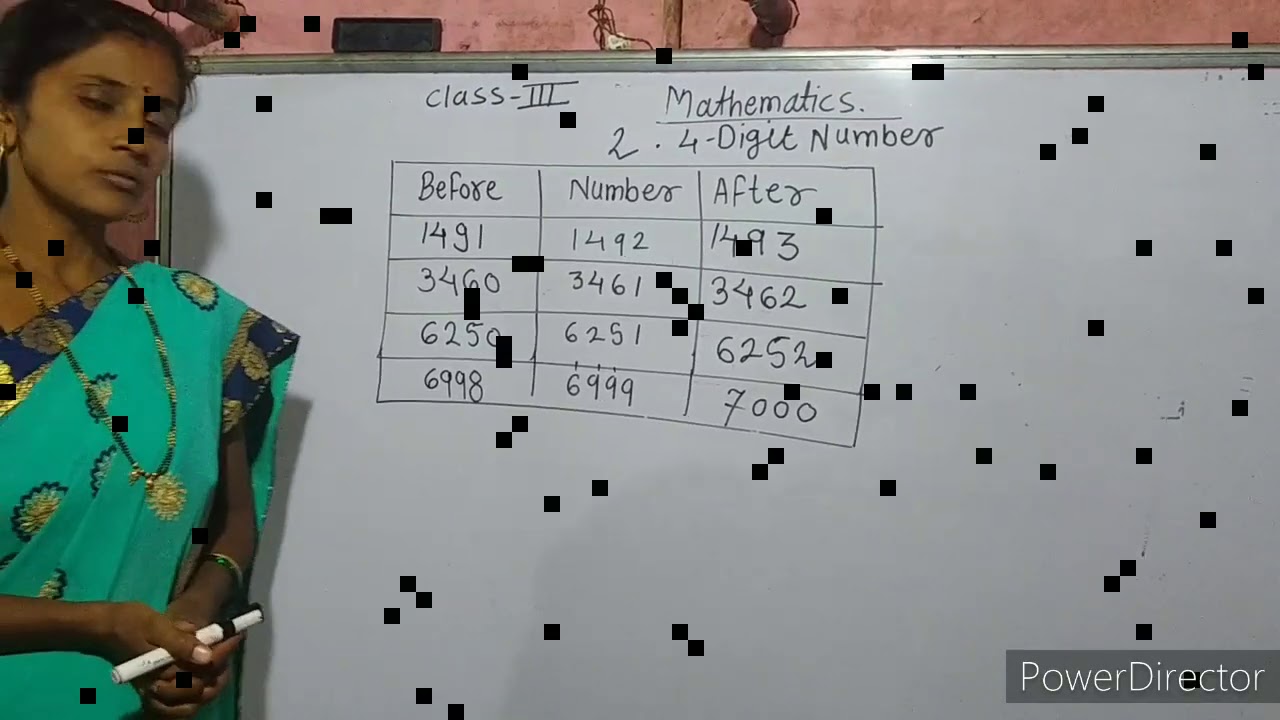 class-III Mathematics.
2. 4-Digit Number
Before Number After
1491 1492 1493
3460 3461 3462
6250 6251 6252
6998 6999 7000
PowerDirector